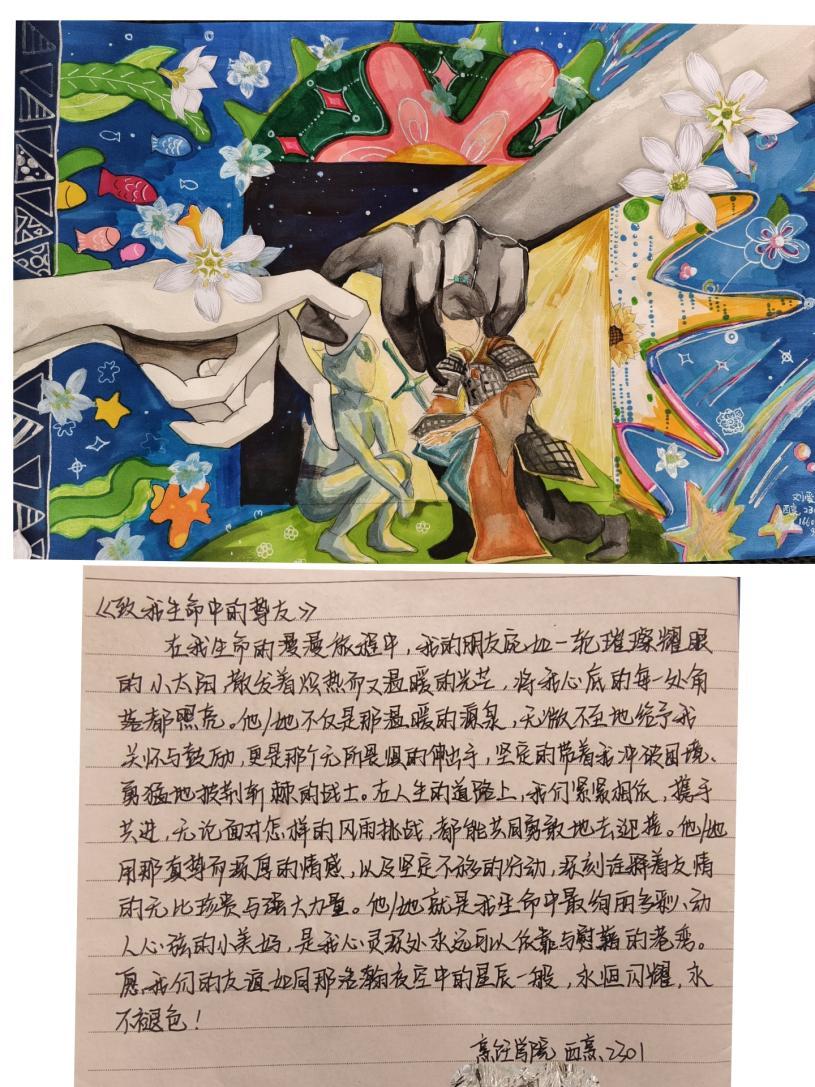 《致我生命中的尊友》
在我生命的漫漫旅程中,我的朋友宛如一轮璀璨耀眼
的小太阳,散发着炽热而又温暖的光芒,将我心底的每一处角
落都照亮。他/她不仅是那温暖的源泉,无微不至地给予我
关怀与鼓励,更是那个无所畏惧的伸出手,坚定的带着我冲破困境、
勇猛地披荆斩棘的战士。在人生的道路上,我们紧紧相依,携手
共进,无论面对怎样的风雨挑战,都能共同勇敢地去迎接。他/她
用那真挚而深厚的情感,以及坚定不移的行动,深刻诠释着友情
的无比珍贵与强大力量。他/她就是我生命中最绚丽多彩、动
人心弦的小美好,是我心灵深处永远可以依靠与慰藉的港湾。
愿我们的友谊如同那浩瀚夜空中的星辰一般,永恒闪耀,永
不褪色!
烹饪学院 西烹2301